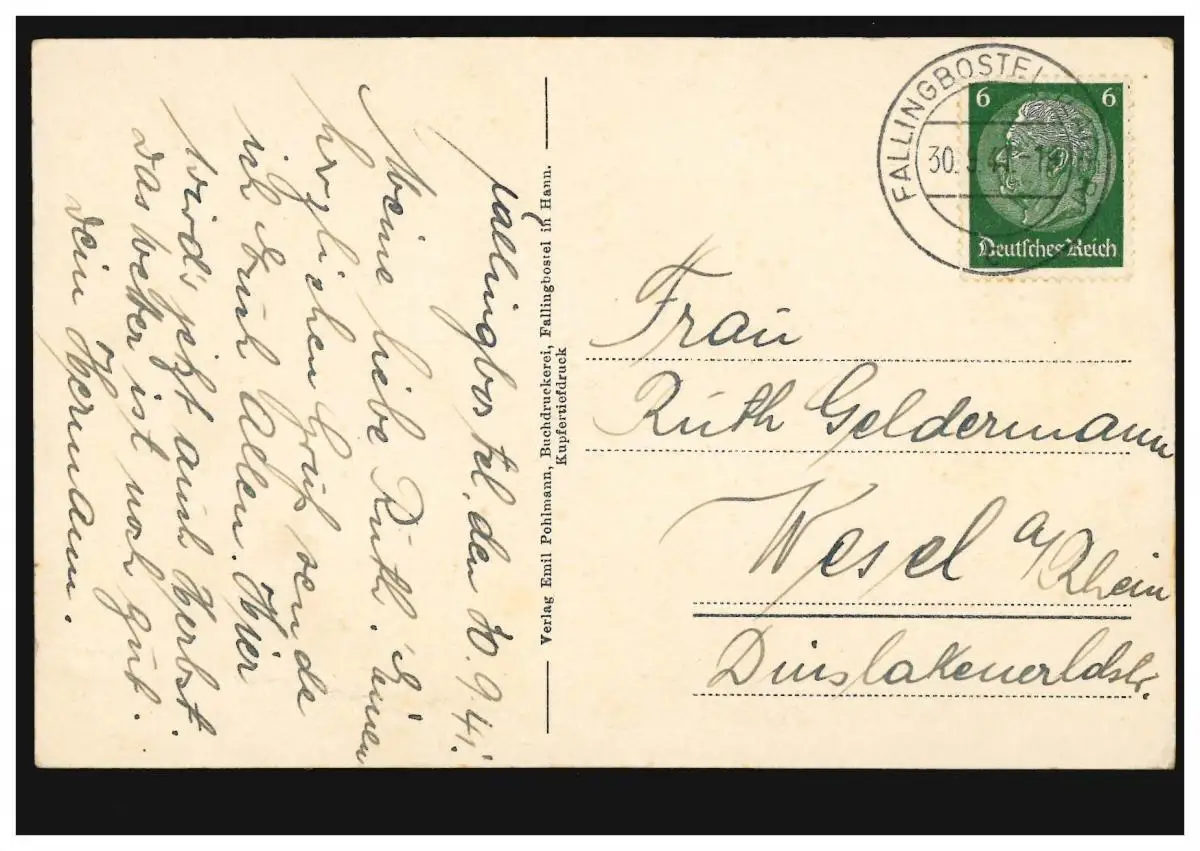 Fallingbostel, den 30.9.41.
Meine liebe Ruth! Einen
herzlichen Gruß sende
ich Euch Allen. Hier
wird's jetzt auch Herbst.
das Wetter ist noch gut.
Dein Hermann.
Verlag Emil Pohlmann, Buchdruckerei, Fallingbostel in Hann.
Kupfertiefdruck
FALLINGBOSTEL
30. 9.41
6 6
Deutsches Reich
Frau
Ruth Geldermann
Wesel a/Rhein
Dinslakenerldstr.